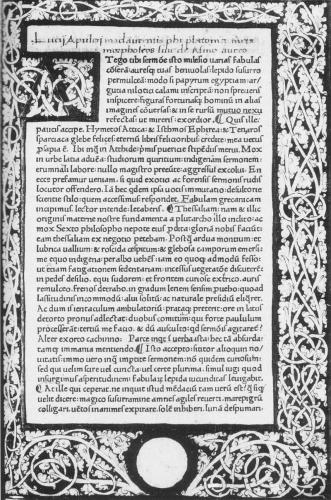 Lucij Apuleij madaurensis phi platonici meta
morphoseos liber de Asino aureo
T ego tibi sermōe isto milesio uarias fabulas
cōserā: auresq; tuas beniuolas lepido susurro
permulceā: modo si papyrum egyptiam ar/
gutia nilotici calami inscriptā non spreueris
inspicere: figuras fortunasq; hominū in alias
imagines cōuersas: & in se rursū mutuo nexu
refectas: ut mireris: exordior. Quis ille.
paucis accipe. Hymetos Attica: & Isthmos Ephirea: & Tenaros
sparciaca glebe felices: eternū libris felicioribus
est. Ibi Attide
urbe latia aduēa: studiorum quiritium: indigenam sermonem:
erumnabili labore: nullo magistro preeunte: aggressus excolui. En
ecce prefamur ueniam: si quid exotici ac forensis sermonis rudis
locutor offendero. Iā hec qdem ipsa uocis immutatio: desultorie
scientie stilo: quem accessimus: respondet. Fabulam grecanicam
incipimus: lector intende: letaberis. Thessaliam: nam & illic
originis materne nostre fundamenta a plutarcho illo inclito: ac
mox Sexto philosopho nepote eius pdita: gloriā nobis faciūt:
eam thessaliam ex negotio petebam. Postq̄ ardua montium: et
lubrica uallium: & roscida cespitum: & glebosa camporum emersi:
me equo indigena: peralbo uehēs: iam eo quoq; admodū fesso:
ut etiam fatigationem sedentariam: incessus uegetatōe discuterē:
in pedes desilio. equi sudorem: et frontem curiose extrico: auris
remulceo. frenos detraho. in gradum lenem sensim pueho: quoad
lassitudinis incommodū: alui solitū: ac naturale presidiū eliqret.
Ac dum is ientaculum ambulatoriū: prataq; preterit: ore in latus
detorto pronus affectat: duobus comitum: qui forte paululum
processerāt: tertiū me facio. & dū ausculto: qd sermōis agitaret?
Alter exorto cachinno: Parce inqt i uerba ista: hec tā absurda:
tamq; immania mentiendo. Isto accepto: sititor alioquin no/
uitatis: immo uero inq̄ impartite sermonem: nō quidem curiosum:
sed qui uelim scire uel cuncta: uel certe plurima. simul iugi quod
insurgimus aspritudinem: fabulaꝝ lepida iucunditas leuigabit.
At ille qui ceperat. ne inquit istud mēdaciū tam uerū est: q̄ siq̄
uelit dicere: magico susurramine amnes agiles reuerti: mare pigrū
colligari. uētos inanimes expirare. solē inhiberi. lunā despumari.